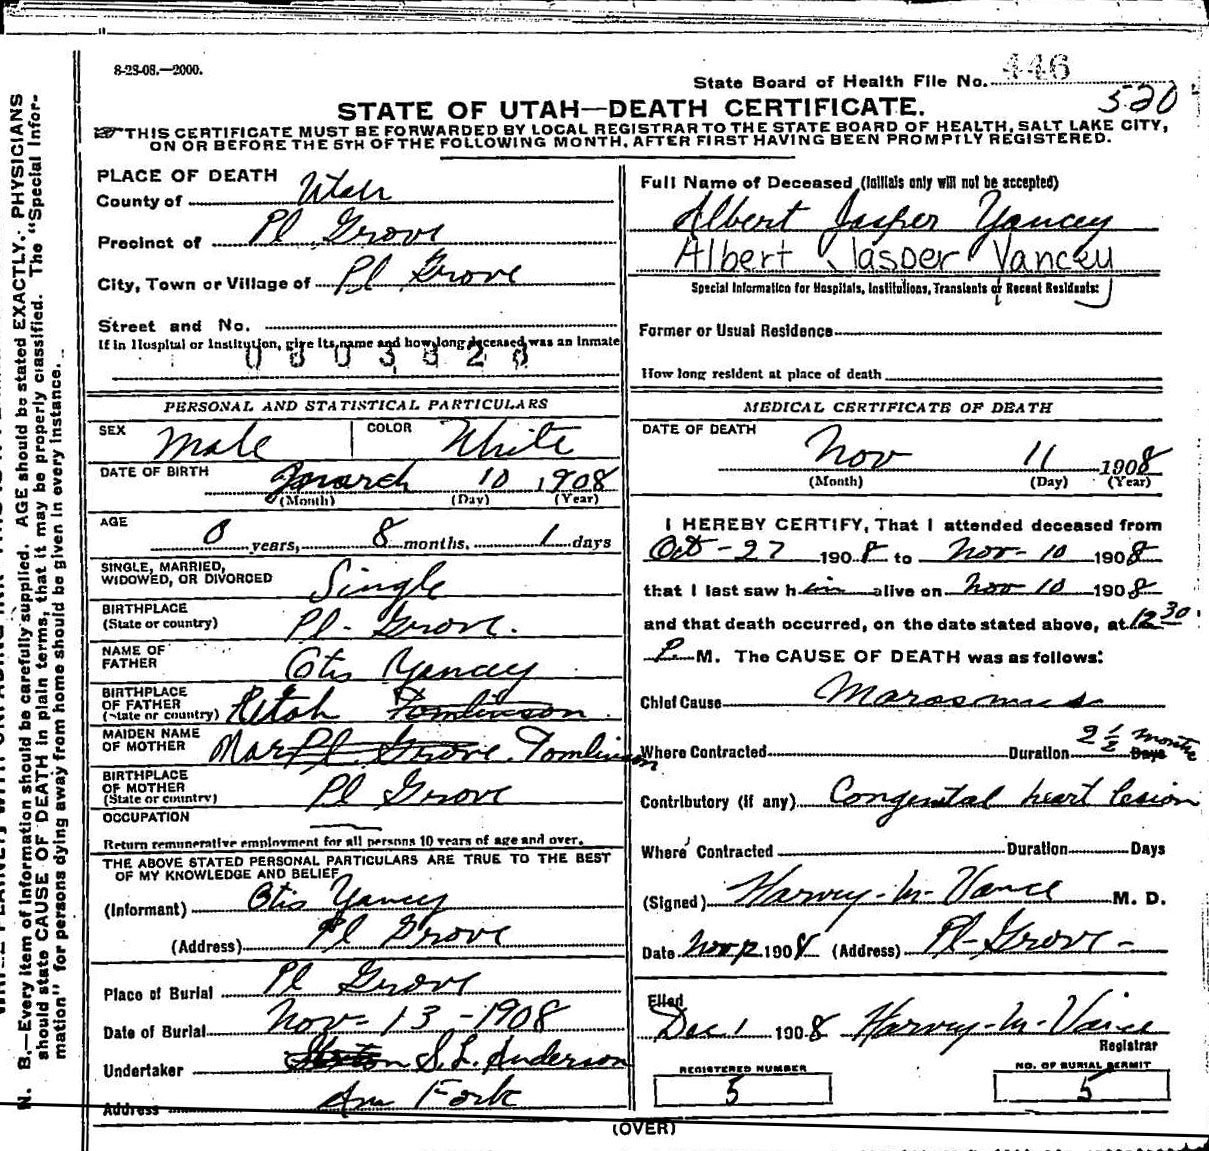 8-28-08.—2000.
State Board of Health File No. 446
520
STATE OF UTAH—DEATH CERTIFICATE.
THIS CERTIFICATE MUST BE FORWARDED BY LOCAL REGISTRAR TO THE STATE BOARD OF HEALTH, SALT LAKE CITY,
ON OR BEFORE THE 5TH OF THE FOLLOWING MONTH, AFTER FIRST HAVING BEEN PROMPTLY REGISTERED.
PLACE OF DEATH
County of Utah
Precinct of Pl Grove
City, Town or Village of Pl Grove
Street and No.
If in Hospital or Institution, give its name and how long deceased was an Inmate
PERSONAL AND STATISTICAL PARTICULARS
SEX Male COLOR White
DATE OF BIRTH March 10 1908
(Month) (Day) (Year)
AGE
0 years, 8 months, 1 days
SINGLE, MARRIED,
WIDOWED, OR DIVORCED Single
BIRTHPLACE
(State or country) Pl - Grove.
NAME OF
FATHER Otis Yancey
BIRTHPLACE
OF FATHER
(State or country) Tomlinson
MAIDEN NAME
OF MOTHER Mar Pl Grove Tomlinson
BIRTHPLACE
OF MOTHER
(State or country) Pl Grove
OCCUPATION
Return remunerative employment for all persons 10 years of age and over.
THE ABOVE STATED PERSONAL PARTICULARS ARE TRUE TO THE BEST
OF MY KNOWLEDGE AND BELIEF
(Informant) Otis Yancey
(Address) Pl Grove
Place of Burial Pl Grove
Date of Burial Nov - 13 - 1908
Undertaker S. L. Anderson
Address Am Fork
Full Name of Deceased (Initials only will not be accepted)
Albert Jasper Yancey
Albert Jasper Yancey
Special Information for Hospitals, Institutions, Transients or Recent Residents:
Former or Usual Residence
How long resident at place of death
MEDICAL CERTIFICATE OF DEATH
DATE OF DEATH
Nov 11 1908
(Month) (Day) (Year)
I HEREBY CERTIFY, That I attended deceased from
Oct - 27 1908 to Nov - 10 1908
that I last saw him alive on Nov 10 1908
and that death occurred, on the date stated above, at 12 30
P. M. The CAUSE OF DEATH was as follows:
Chief Cause Marasmus
Where Contracted Duration 2 1/2 months Days
Contributory (if any) Congenital heart lesion
Where Contracted Duration Days
(Signed) Harvey - M - Vance M. D.
Date Nov 12 1908 (Address) Pl - Grove -
Filed
Dec 1 1908 Harvey - M - Vance
Registrar
REGISTERED NUMBER
5
NO. OF BURIAL PERMIT
5
(OVER)
N. B.—Every item of information should be carefully supplied. AGE should be stated EXACTLY. PHYSICIANS
should state CAUSE OF DEATH in plain terms, that it may be properly classified. The "Special Infor-
mation" for persons dying away from home should be given in every instance.